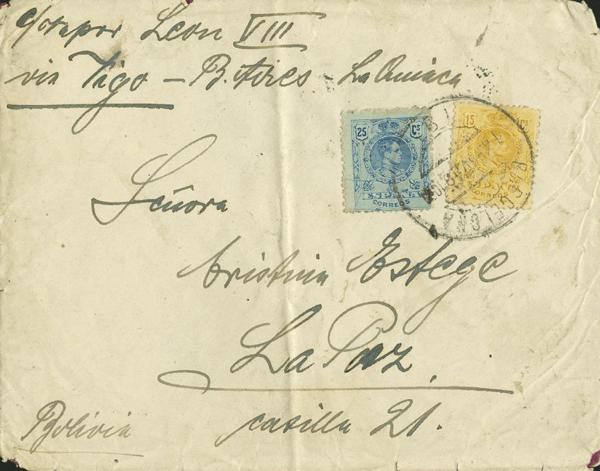 c/o vapor Leon VIII
via Vigo - B. Aires - La Quiaca
25 Cs
CORREOS
15
BARCELONA
Señora
Cristina Estege
La Paz.
casilla 21.
Bolivia